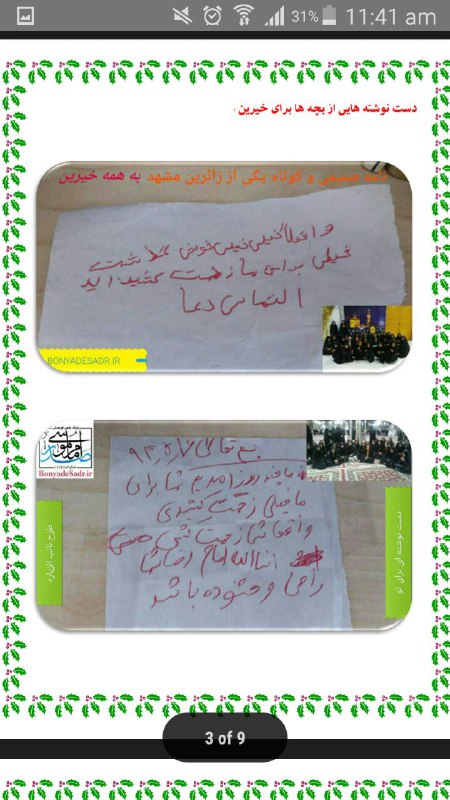 31% 11:41 am
دست نوشته هایی از بچه ها برای خیرین .
نامه صمیمی و کوتاه یکی از زائرین مشهد به همه خیرین
واقعا خیلی خیلی خوش گذشت
خیلی برای ما زحمت کشیده اید
التماس دعا
BONYADESADR.IR
امام موسی صدر
BonyadeSadr.ir
بسم تعالی
ما چند روز آمدیم شما برای
ما خیلی زحمت کشیدی
واقعا شما زحمت کش
انشاالله امام رضا از شما
راضی و خشنود باشد
طرح نائب الزیاره
دست نوشته ای برای تو
3 of 9